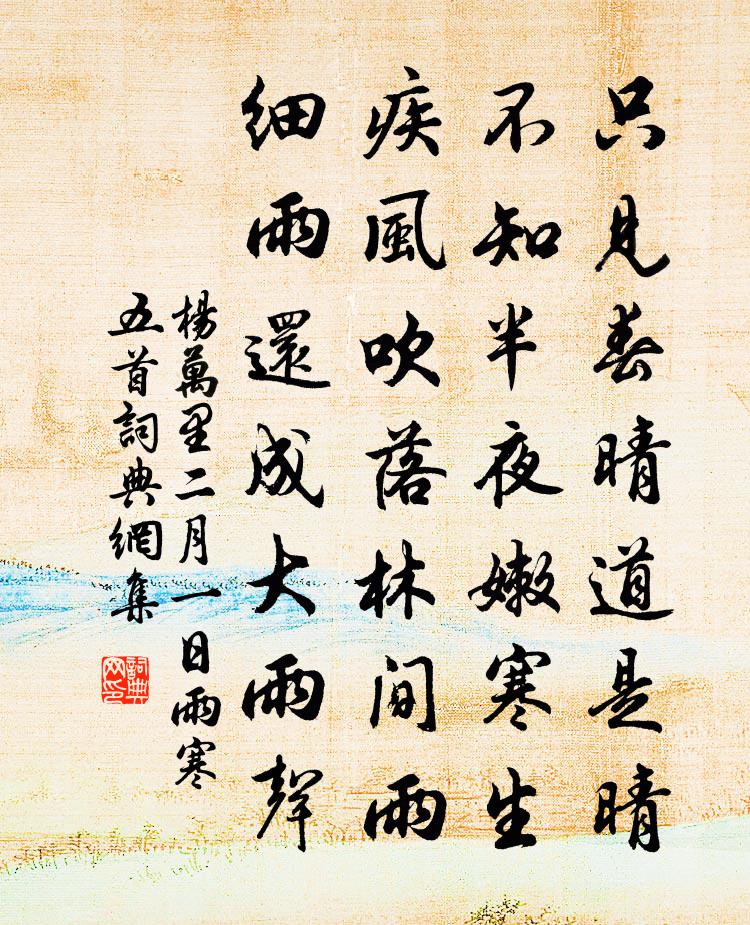 只見春晴道是晴
不知半夜嫩寒生
疾風吹落林間雨
細雨還成大雨聲
楊萬里二月一日雨寒
五首詞典網集
詞典
网印